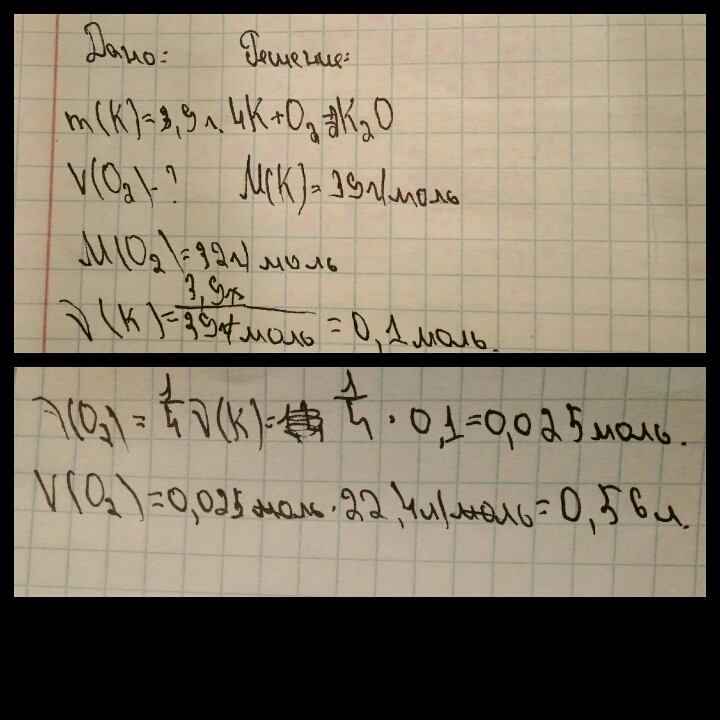 Дано: Решение:
m(K)=3,9г. 4K+O₂=2K₂O
V(O₂)-? M(K)=39г/моль
M(O₂)=32г/моль
ν(K)=3,9г/39г/моль=0,1моль.
ν(O₂)=1/4ν(K)=1/4·0,1=0,025моль.
V(O₂)=0,025моль·22,4л/моль=0,56л.